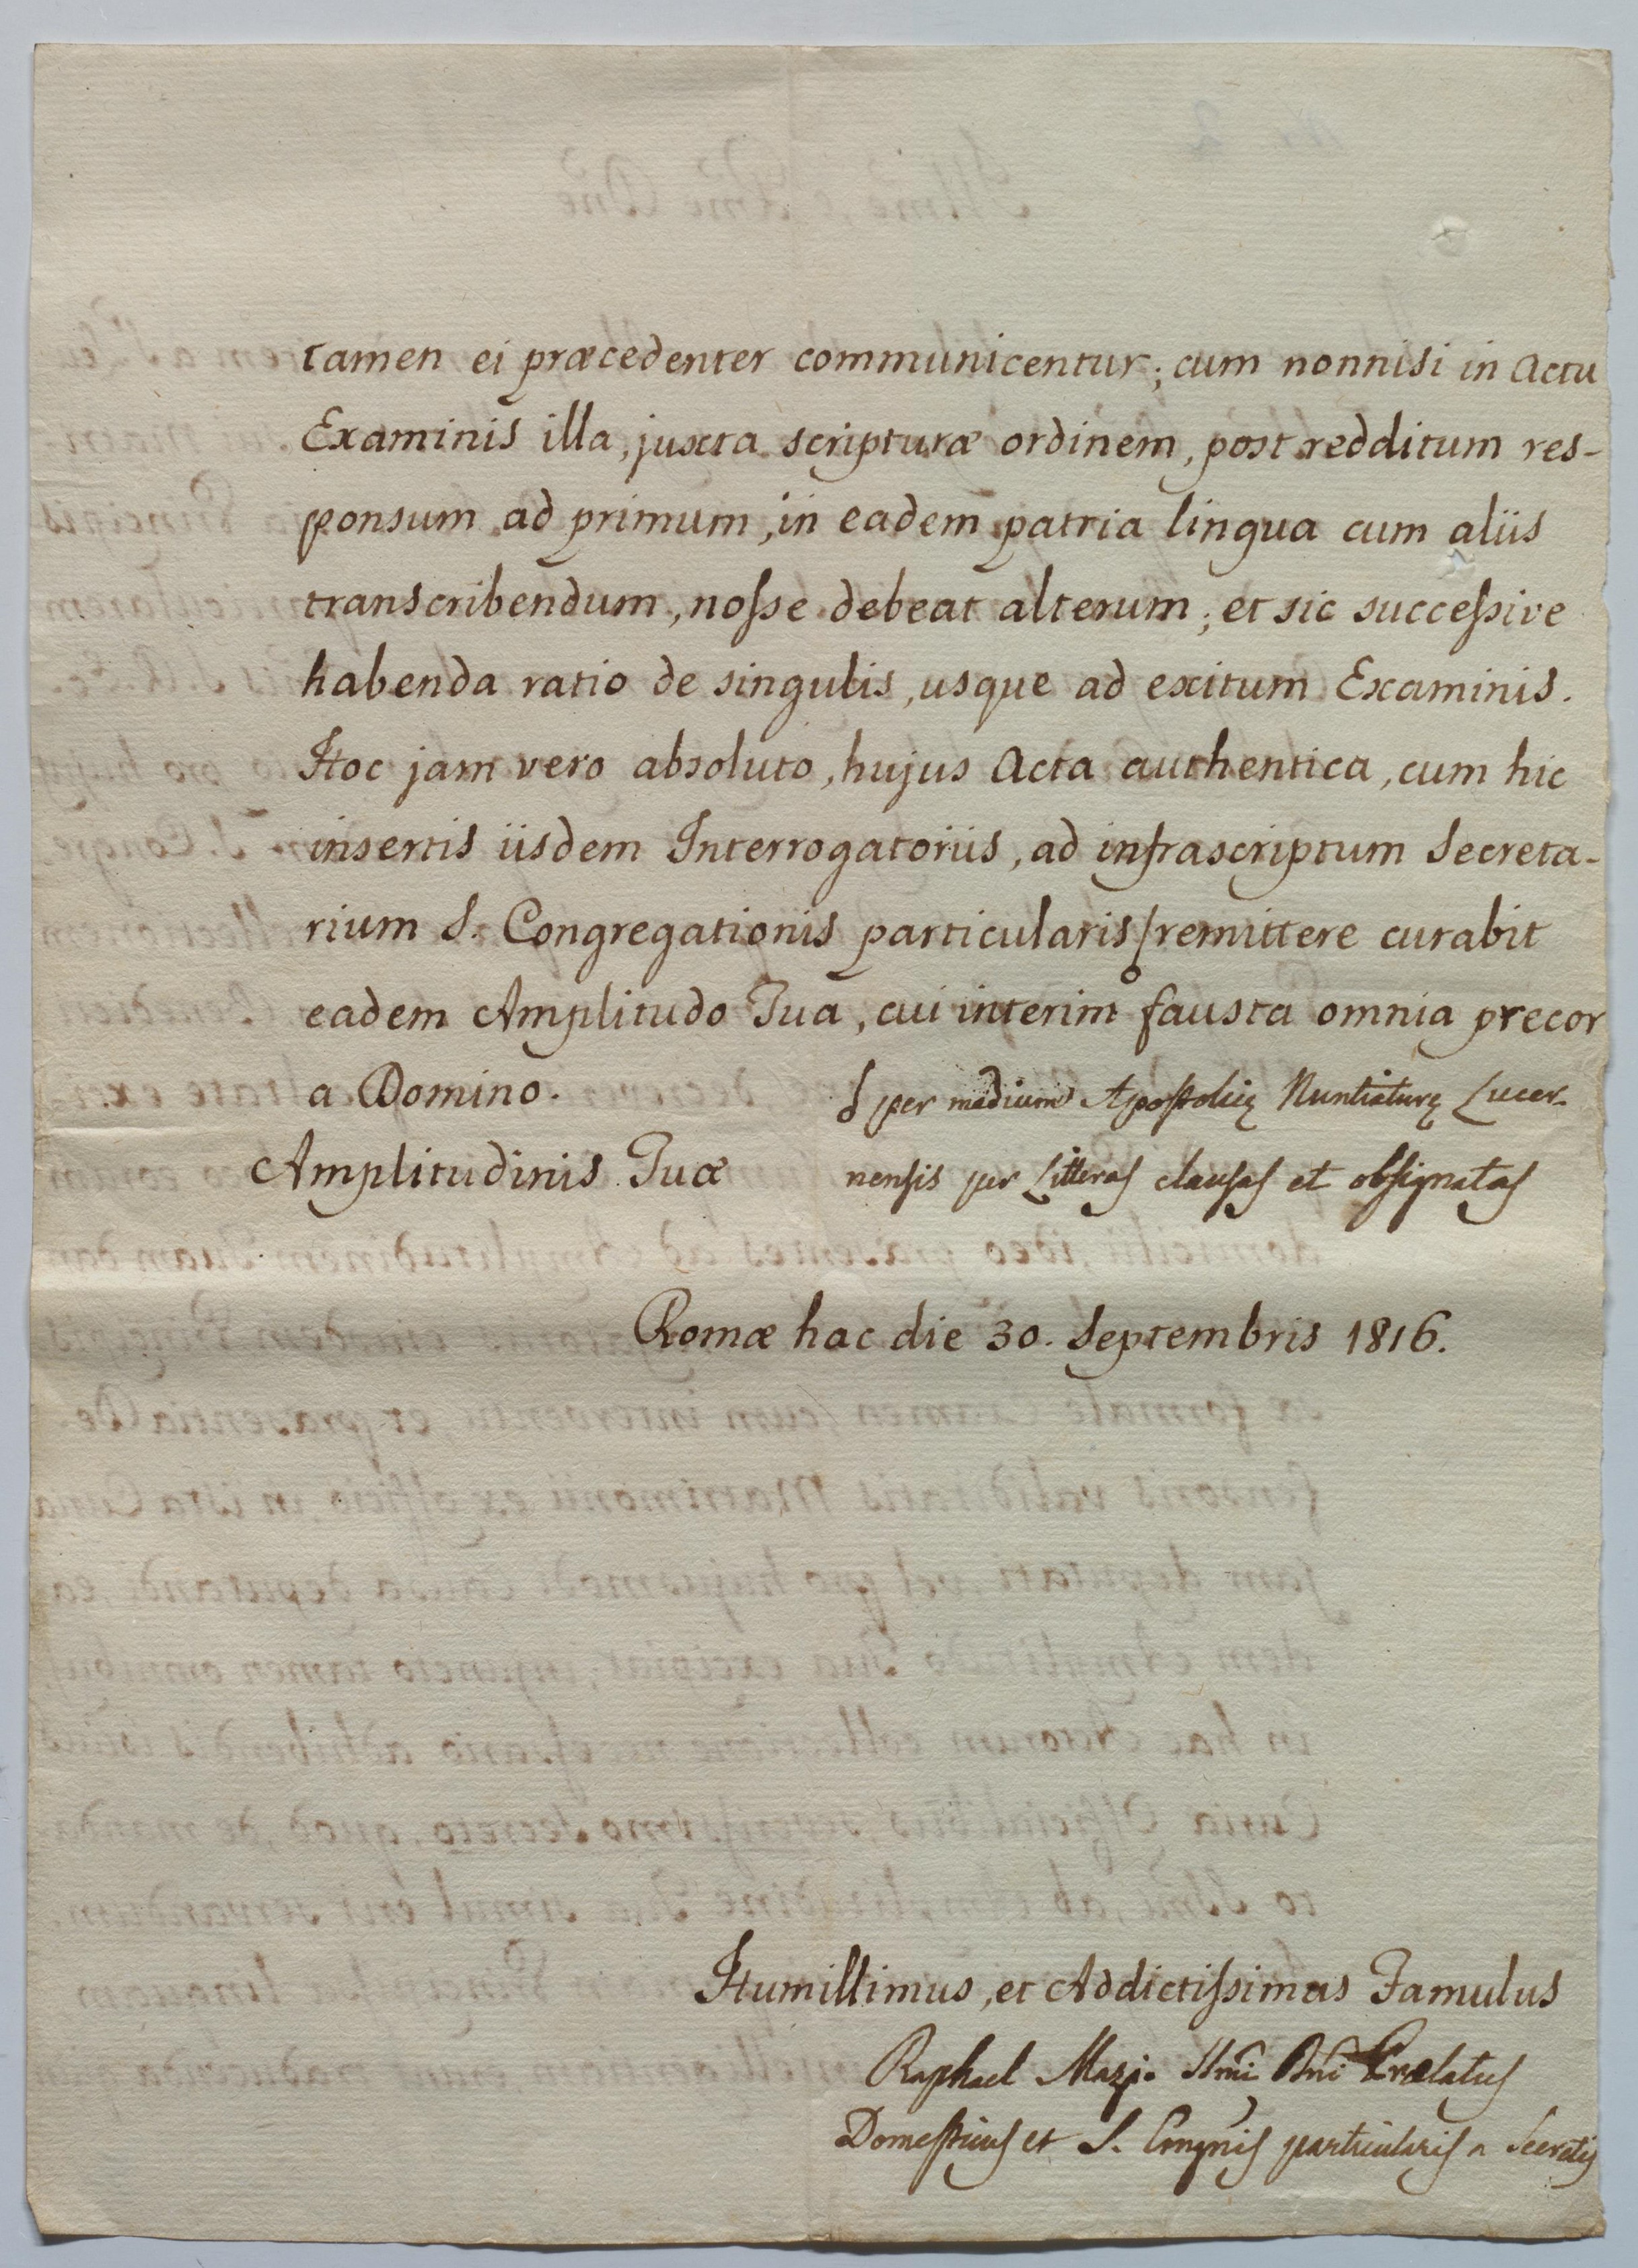 tamen ei præcedenter communicentur; cum nonnisi in Actu
Examinis illa, juxta scripturæ ordinem, post redditum res-
ponsum ad primum, in eadem patria lingua cum aliis
transcribendum, nosse debeat alterum; et sic successive
habenda ratio de singulis, usque ad exitum Examinis.
Hoc jam vero absoluto, hujus Acta authentica, cum hic
insertis iisdem Interrogatoriis, ad infrascriptum Secreta-
rium S. Congregationis particularis remittere curabit
eadem Amplitudo Tua, cui interim fausta omnia precor
a Domino.
per medium Apostolicę Nuntiaturę Lucer-
nensis per Litteras clausas et obsignatas
Amplitudinis Tuæ
Romæ hac die 30. Septembris 1816.
Humillimus, et Addictissimus Famulus
Raphael Mazio Ssmi Dni Prælatus
Domesticus et S. Congnis particularis a Secretis